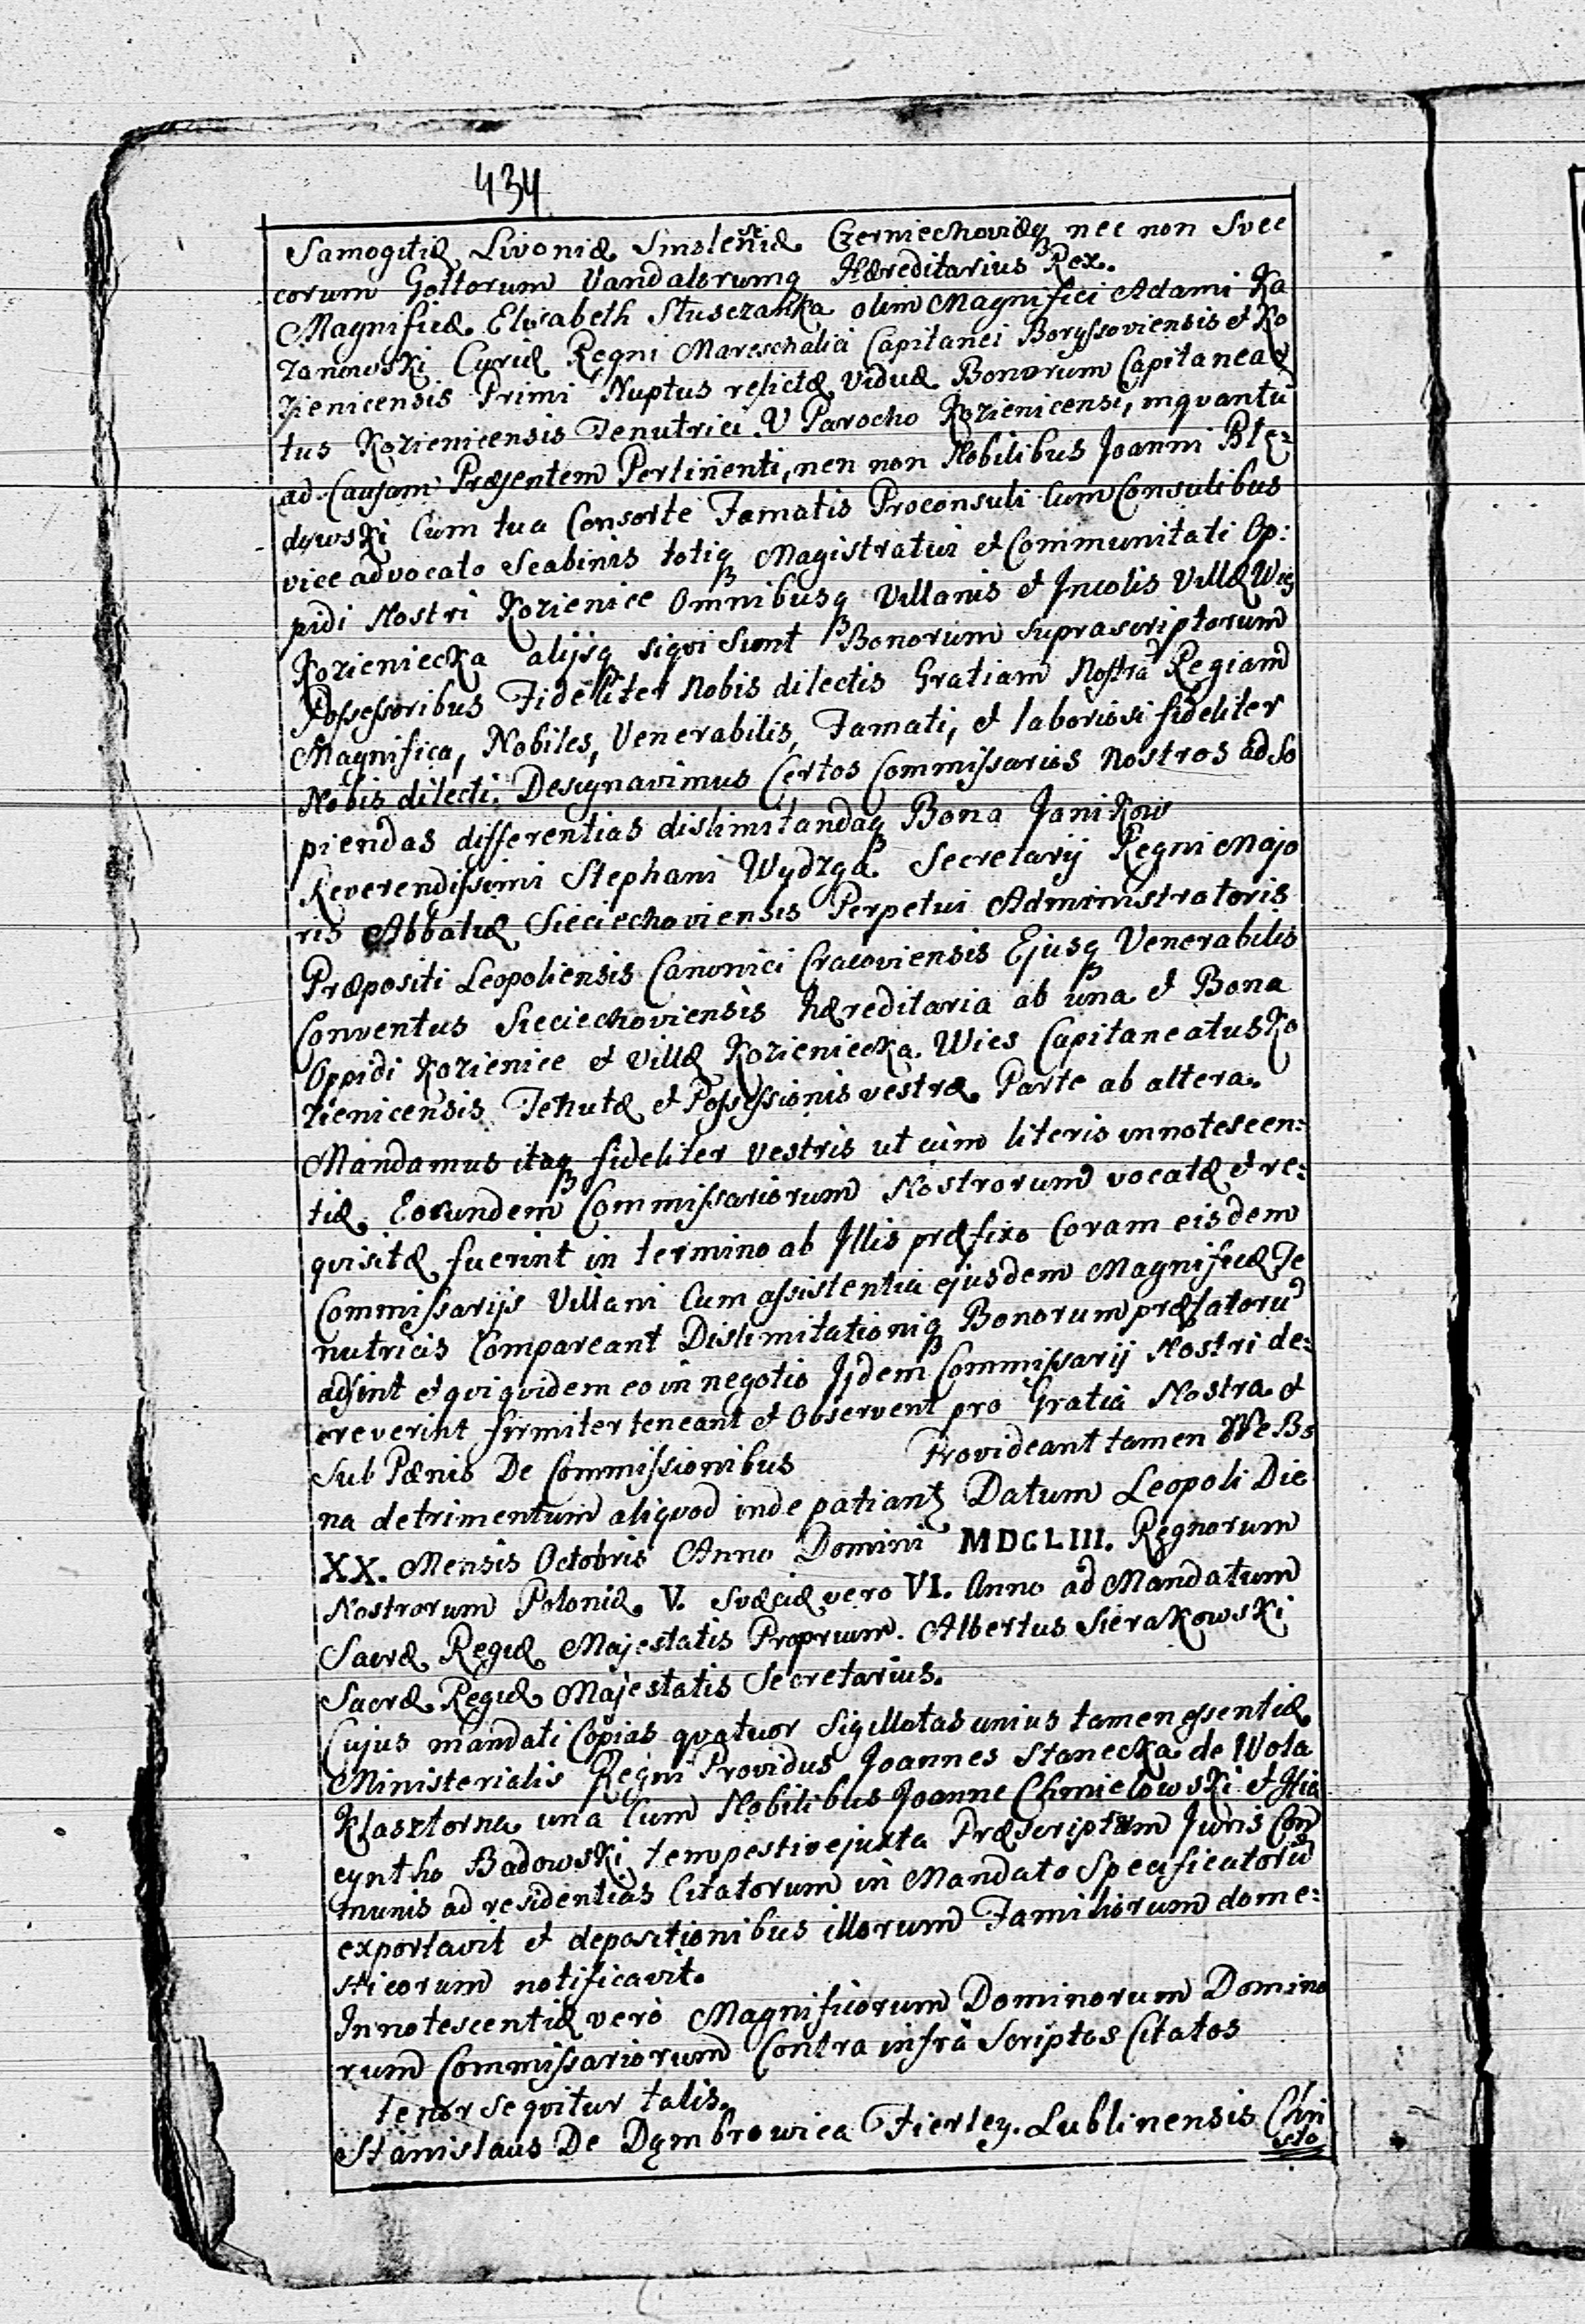 434
Samogitiæ Livoniæ Smoleniæ Czerniechoviæq nec non Svec
corum Gottorum Vandalorumq Hæreditarius Rex.
Magnificæ Elisabeth Słusczanka olim Magnifici Adami Ka
zanowski Curiæ Regni Mareschalici Capitanei Boryssoviensis et Ko
zienicensis Primi Nuptus relictæ Viduæ Bonorum Capitanea
tus Kozienicensis Tenutrici V Parocho Kozienicensi, inquantũ
ad Causam Præsentem Pertinenti, nen non Nobilibus Joanni Ble=
dowski Cum tua Consorte Famatis Proconsuli Cum Consulibus
vice advocato Scabinis totiq Magistratui et Communitati Op:
pidi Nostri Kozienice Omnibusq Villanis et Incolis Villæ Wies
Kozieniecka alijsq siqvi Sunt Bonorum Suprascriptorum
Possessoribus Fideliter Nobis dilectis Gratiam Nostrã Regiam
Magnifica, Nobiles, Venerabilis, Famati, et laboriosi fideliter
Nobis dilecti. Designavimus Certos Commissarios Nostros ad So
piendas differentias dislimitandaq Bona Janikow
Reverendissimi Stephani Wydzga Secretarij Regni Majo
ris Abbatiæ Sieciechoviensis Perpetui Administratoris
Præpositi Leopoliensis Canonici Cracoviensis Ejusq Venerabilis
Conventus Sieciechoviensis hæreditaria ab una et Bona
Oppidi Kozienice et Villæ Kozieniecka Wies Capitaneatus Ko
zienicensis Tenutæ et Possessionis vestræ Parte ab altera.
Mandamus itaq fideliter vestris ut cùm literis innotescen=
tiæ Eorundem Commissariorum Nostrorum vocatæ et re=
qvisitæ fuerint in termino ab Illis præfixo Coram eisdem
Commissarijs Villani Cum assistentia ejusdem Magnificæ Te
nutricis Compareant Dislimitationiq Bonorum præfatorũ
adsint et qvi qvidem eo in negotio Ijdem Commissarij Nostri de=
creverint firmiter teneant et Observent pro Gratia Nostra et
Sub Pænis De Commissionibus Provideant tamen Ne Bo
na detrimentum aliqvod inde patiant Datum Leopoli Die
XX. Mensis Octobris Anno Domini MDCLIII. Regnorum
Nostrorum Poloniæ V. Svæciæ vero VI. Anno ad Mandatum
Sacræ Regiæ Majestatis Proprium. Albertus Sierakowski
Sacræ Regiæ Majestatis Secretarius.
Cujus mandati Copias qvatuor Sigillatas unius tamen essentiæ
Ministerialis Regni Providus Joannes Stanecka de Wola
Klasztorna una Cum Nobilibus Joanne Chmielowski et Hia
cyntho Badowski tempestive juxta Præscriptum Juris Com
munis ad residentias Citatorum in Mandato Specificatorũ
exportavit et depositionibus illorum Familiorum dome=
sticorum notificavit.
Innotescentiæ verò Magnificorum Dominorum Domino
rum Commissariorum Contra infrà Scriptos Citatos
tenor seqvitur talis.
Stanislaus De Dąmbrowica Fierley. Lublinensis Chri
sto